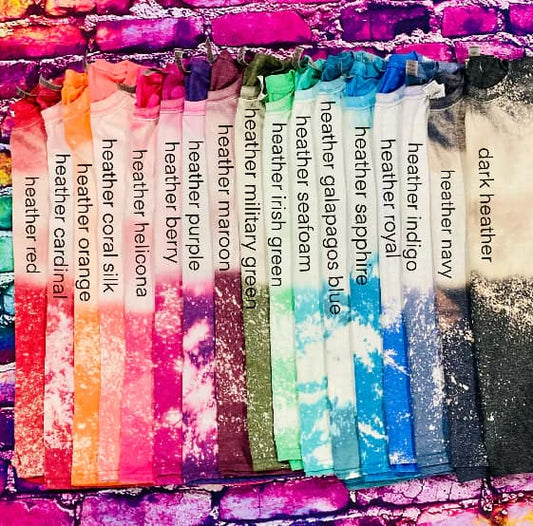 heather red
heather cardinal
heather orange
heather coral silk
heather helicona
heather berry
heather purple
heather maroon
heather military green
heather irish green
heather seafoam
heather galapagos blue
heather sapphire
heather royal
heather indigo
heather navy
dark heather